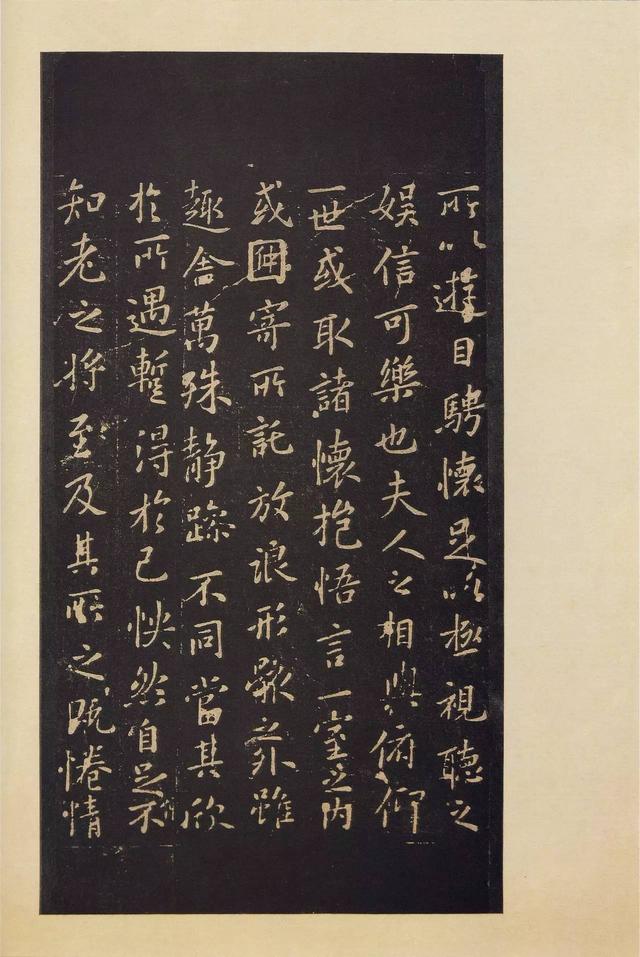 所以遊目騁懷足以極視聽之
娛信可樂也夫人之相與俯仰
一世或取諸懷抱悟言一室之內
或因寄所託放浪形骸之外雖
趣舍萬殊静躁不同當其欣
於所遇暫得於己怏然自足不
知老之將至及其所之既惓情